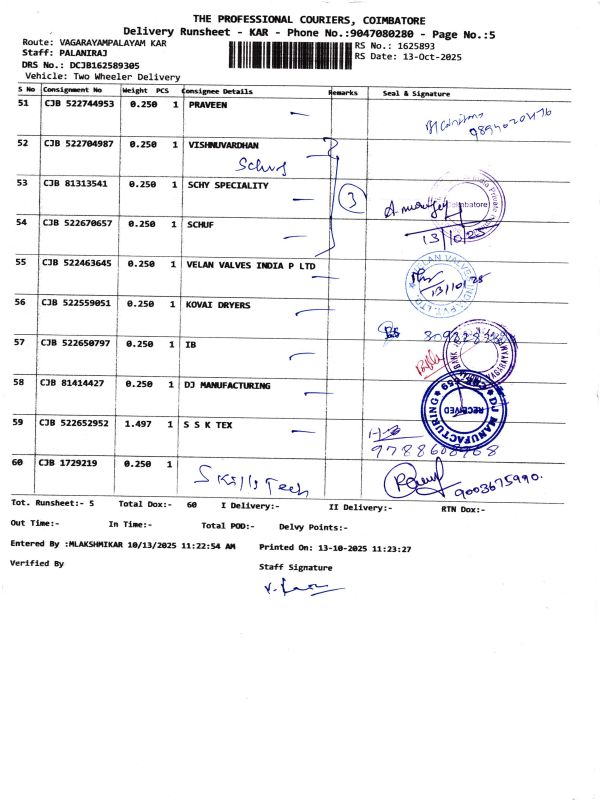 THE PROFESSIONAL COURIERS, COIMBATORE
Delivery Runsheet - KAR - Phone No.:9047080280 - Page No.:5
Route: VAGARAYAMPALAYAM KAR
RS No.: 1625893
Staff: PALANIRAJ
RS Date: 13-Oct-2025
DRS No.: DCJB162589305
Vehicle: Two Wheeler Delivery
S No Consignment No Weight PCS Consignee Details Remarks Seal & Signature
51 CJB 522744953 0.250 1 PRAVEEN
52 CJB 522704987 0.250 1 VISHNUVARDHAN
53 CJB 81313541 0.250 1 SCHY SPECIALITY 3
Coimbatore
54 CJB 522670657 0.250 1 SCHUF
13/10/25
55 CJB 522463645 0.250 1 VELAN VALVES INDIA P LTD
VELAN VALVES INDIA PVT. LTD.
13/10/25
56 CJB 522559051 0.250 1 KOVAI DRYERS
57 CJB 522650797 0.250 1 IB
BANK
58 CJB 81414427 0.250 1 DJ MANUFACTURING
DJ MANUFACTURING
RECEIVED
59 CJB 522652952 1.497 1 S S K TEX
60 CJB 1729219 0.250 1
Skills Tech
9003675990.
Tot. Runsheet:- 5 Total Dox:- 60 I Delivery:- II Delivery:- RTN Dox:-
Out Time:- In Time:- Total POD:- Delvy Points:-
Entered By :MLAKSHMIKAR 10/13/2025 11:22:54 AM Printed On: 13-10-2025 11:23:27
Verified By Staff Signature